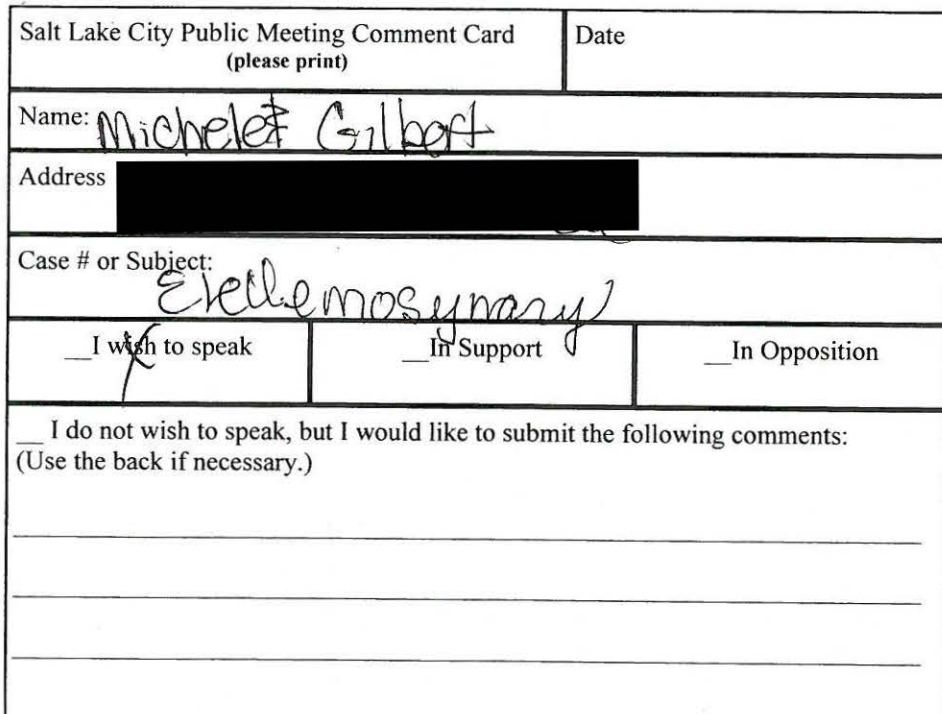 Salt Lake City Public Meeting Comment Card
(please print)
Date
Name: Michele Gilbert
Address
Case # or Subject:
Elellemosynary
__I wish to speak
__In Support
__In Opposition
__ I do not wish to speak, but I would like to submit the following comments:
(Use the back if necessary.)